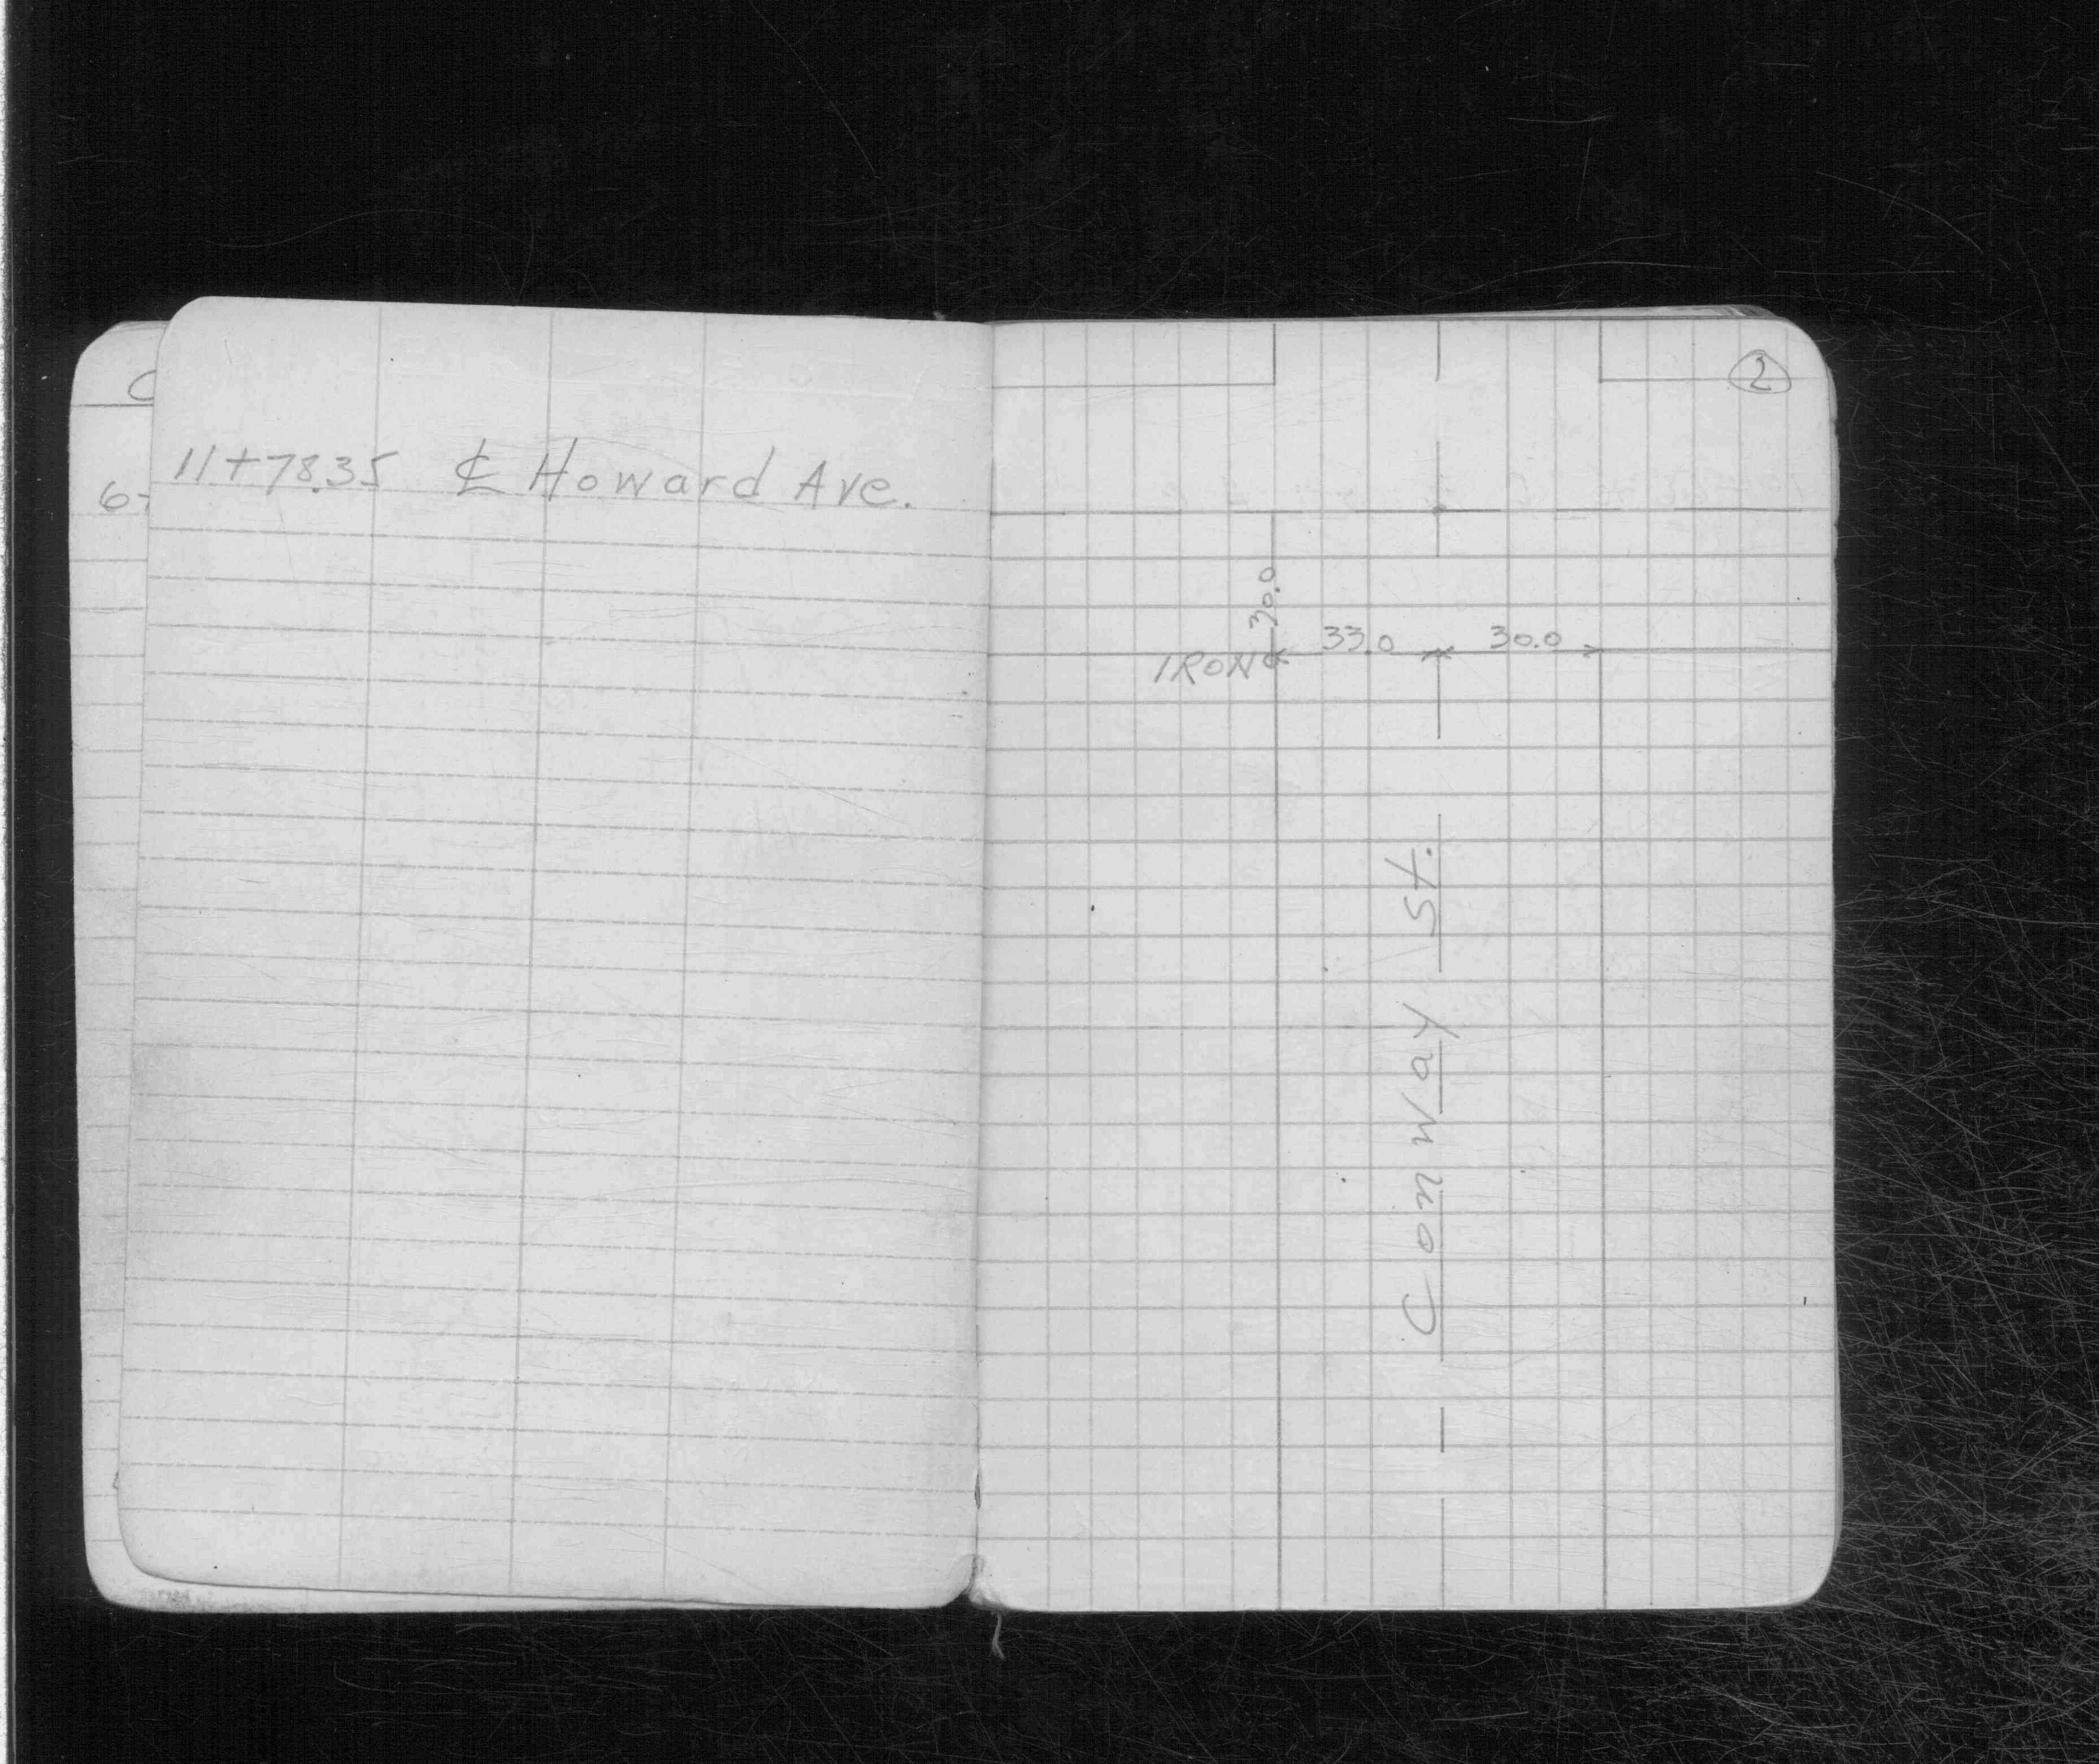 C
6+
11+78.35 ℄ Howard Ave.
2
30.0
33.0 30.0
IRON
Conway St.